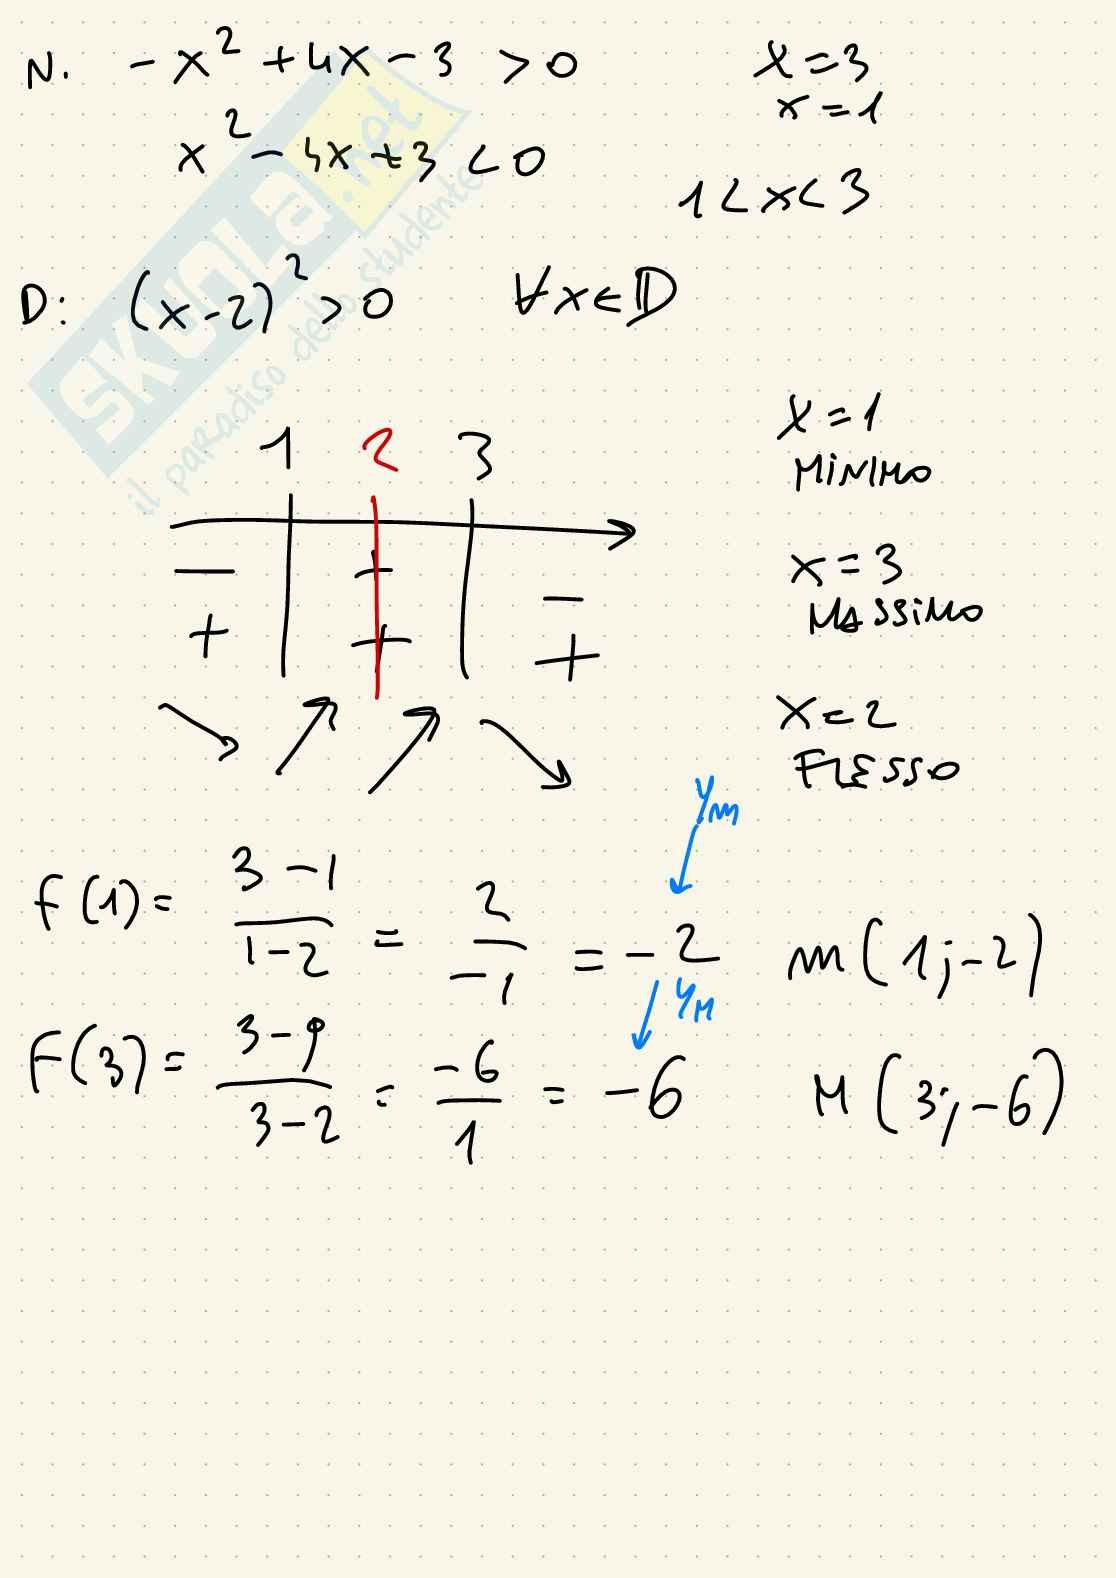 N. -x² + 4x - 3 > 0
x = 3
x = 1
x² - 4x + 3 < 0
1 < x < 3
D: (x-2)² > 0 ∀x∈D
x = 1
MINIMO
1 2 3
x = 3
MASSIMO
- + -
+ + +
x = 2
FLESSO
ym
f(1) = (3-1)/(1-2) = 2/-1 = -2 m(1;-2)
yM
f(3) = (3-9)/(3-2) = -6/1 = -6 M(3;-6)
SKUOLA.net
il paradiso dello studente